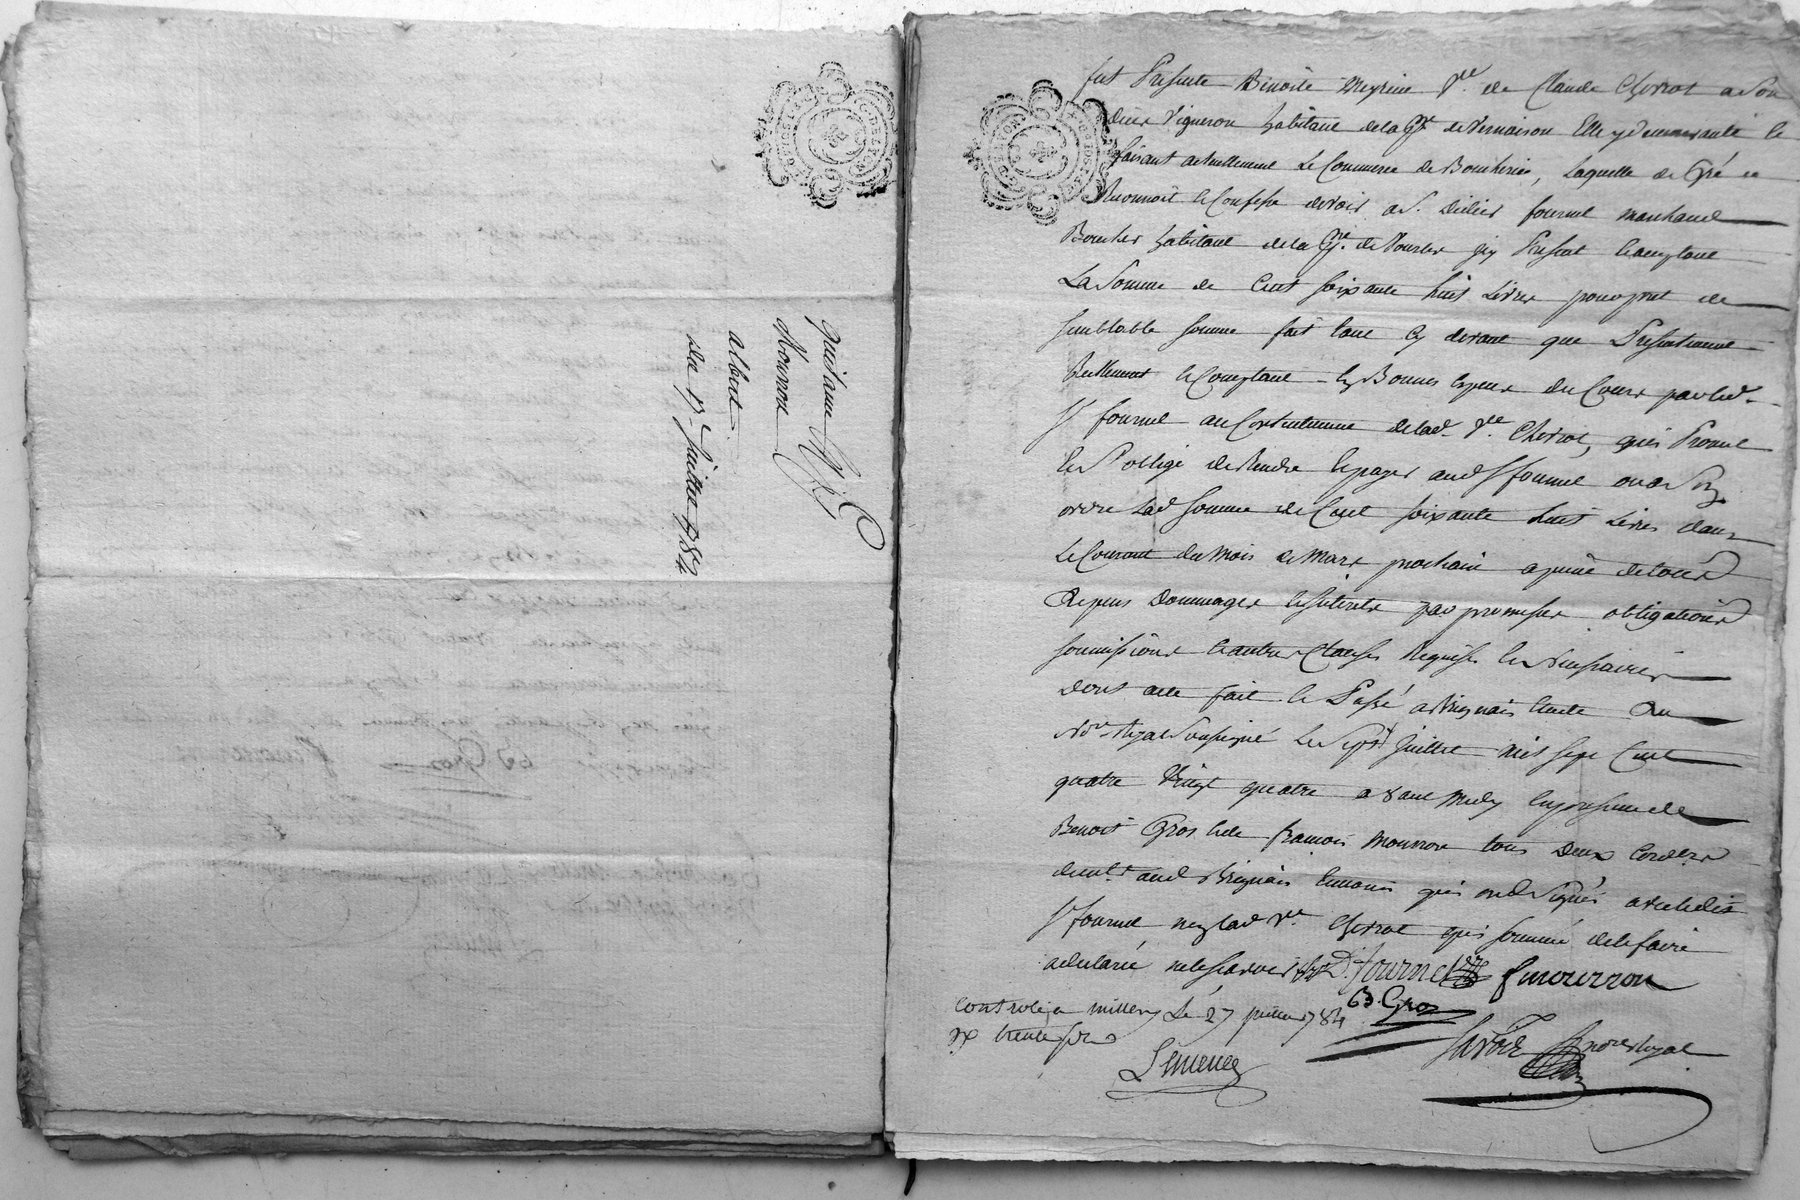 quittance
Mourron
albert
du 17e Juillet 1784
fut Présente Benoite Meyrieu Ve. de Claude Chervot a Son
décès Vigneron habitant de la Psse de Vernaison Elle y demeurante le
faisant actuellement Le Commerce de Boucherie, Laquelle de Gré a
Reconnoit & Confesse devoir a S. Didier fournel marchand
Boucher habitant de la Psse de Vourles icy Présent & acceptant
La Somme de Cent soixante huit Livres pour pret de
semblable somme fait tant cy devant que Présentement
Reellement & Comptant en Bonnes espèces du Cours par led.
Sr fournel au Contentement de lad. Ve. Chervot, qui Promet
& S'oblige de Rendre & payer aud Sr fournel ou a Son
ordre Lad somme de Cent soixante huit Livres dans
Le Courant du Mois de Mars prochain a peine de tous
Depens Dommages & Interets par promesses obligations
soumissions & autres Clauses Requises & Nécessaires
dont acte fait & Passé a Brignais Etude du
Nore Royal Soussigné Le Sept Juillet mil sept Cent
quatre Vingt quatre avant Midy en presence de
Benoit Gros & de françois Mourron tous Deux
demt. aud Brignais temoins qui ont Signés avec led
Sr fournel non lad Ve. Chervot qui sommé de le faire
a déclaré ne le savoir D. fournel f mourron
B. Gros
Controlé a millery Le 27 juillet 1784
Rx trente sols
Lemeney
nore Royal